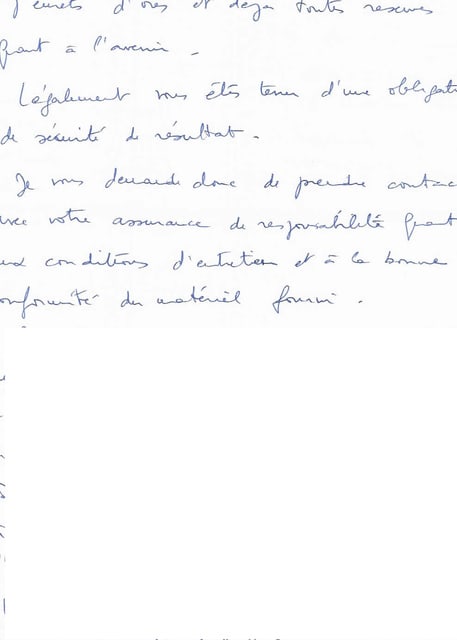 J'émets d'ores et déjà toutes réserves
quant à l'avenir -
Légalement vous êtes tenu d'une obligat
de sécurité de résultat.
Je vous demande donc de prendre contac
avec votre assurance de responsabilité quant
aux conditions d'entretien et à la bonne
onformité du matériel fourni.